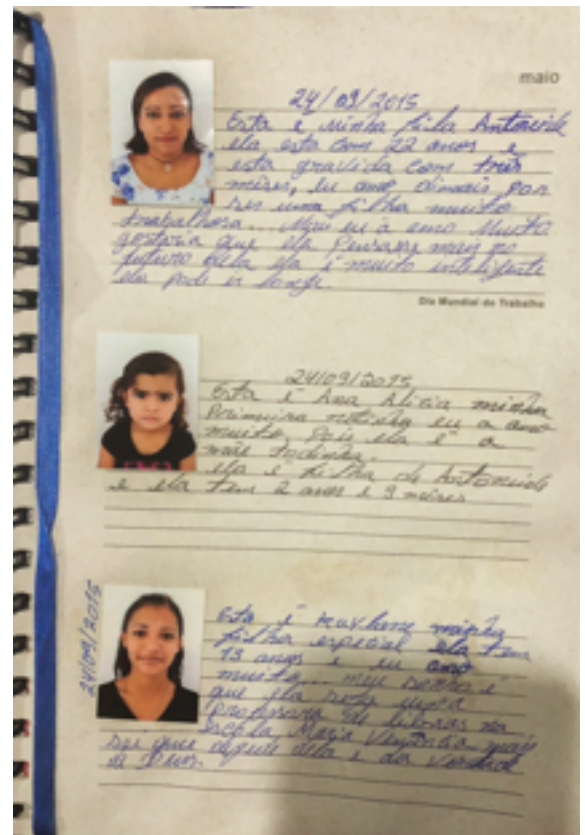 maio
24/09/2015
Esta é minha filha Antoneide
ela esta com 22 anos e
esta gravida com três
mêses, eu amo dimais por
ser uma filha muito
trabalhosa... Mais eu a amo Muito
gostaria que ela Pensasse mais no
futuro dela ela é muito inteligente
ela pode ir longe.
Dia Mundial do Trabalho
24/09/2015
Esta é Ana Alicia minha
Primeira netinha eu a amo
muito, Pois ela é a
mãe todinha.
ela é filha de Antoneide
e ela tem 2 anos e 9 mêses
24/09/2015
Esta é minha
filha especial ela tem
13 anos e eu amo
muito... meu sonho é
que ela seja uma
professora de libras na
Escola Maria mais
sei que depende dela e da vontade
de Deus.